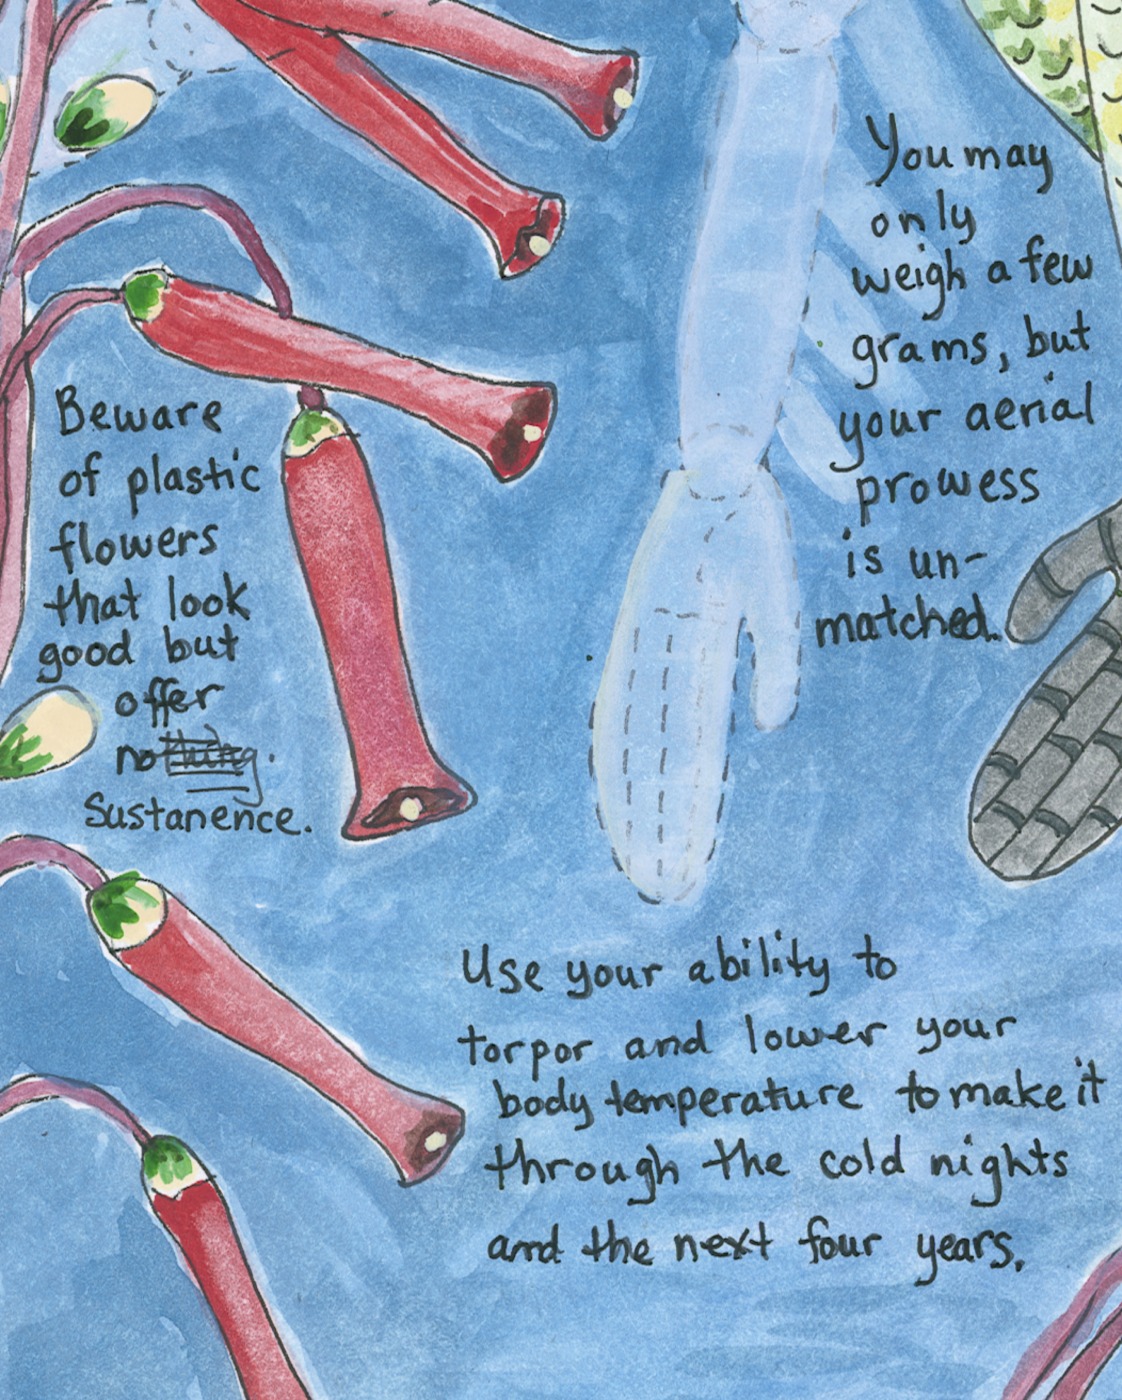 You may
only
weigh a few
grams, but
your aerial
prowess
is un-
matched.
Beware
of plastic
flowers
that look
good but
offer
nothing.
Sustanence.
Use your ability to
torpor and lower your
body temperature to make it
through the cold nights
and the next four years.